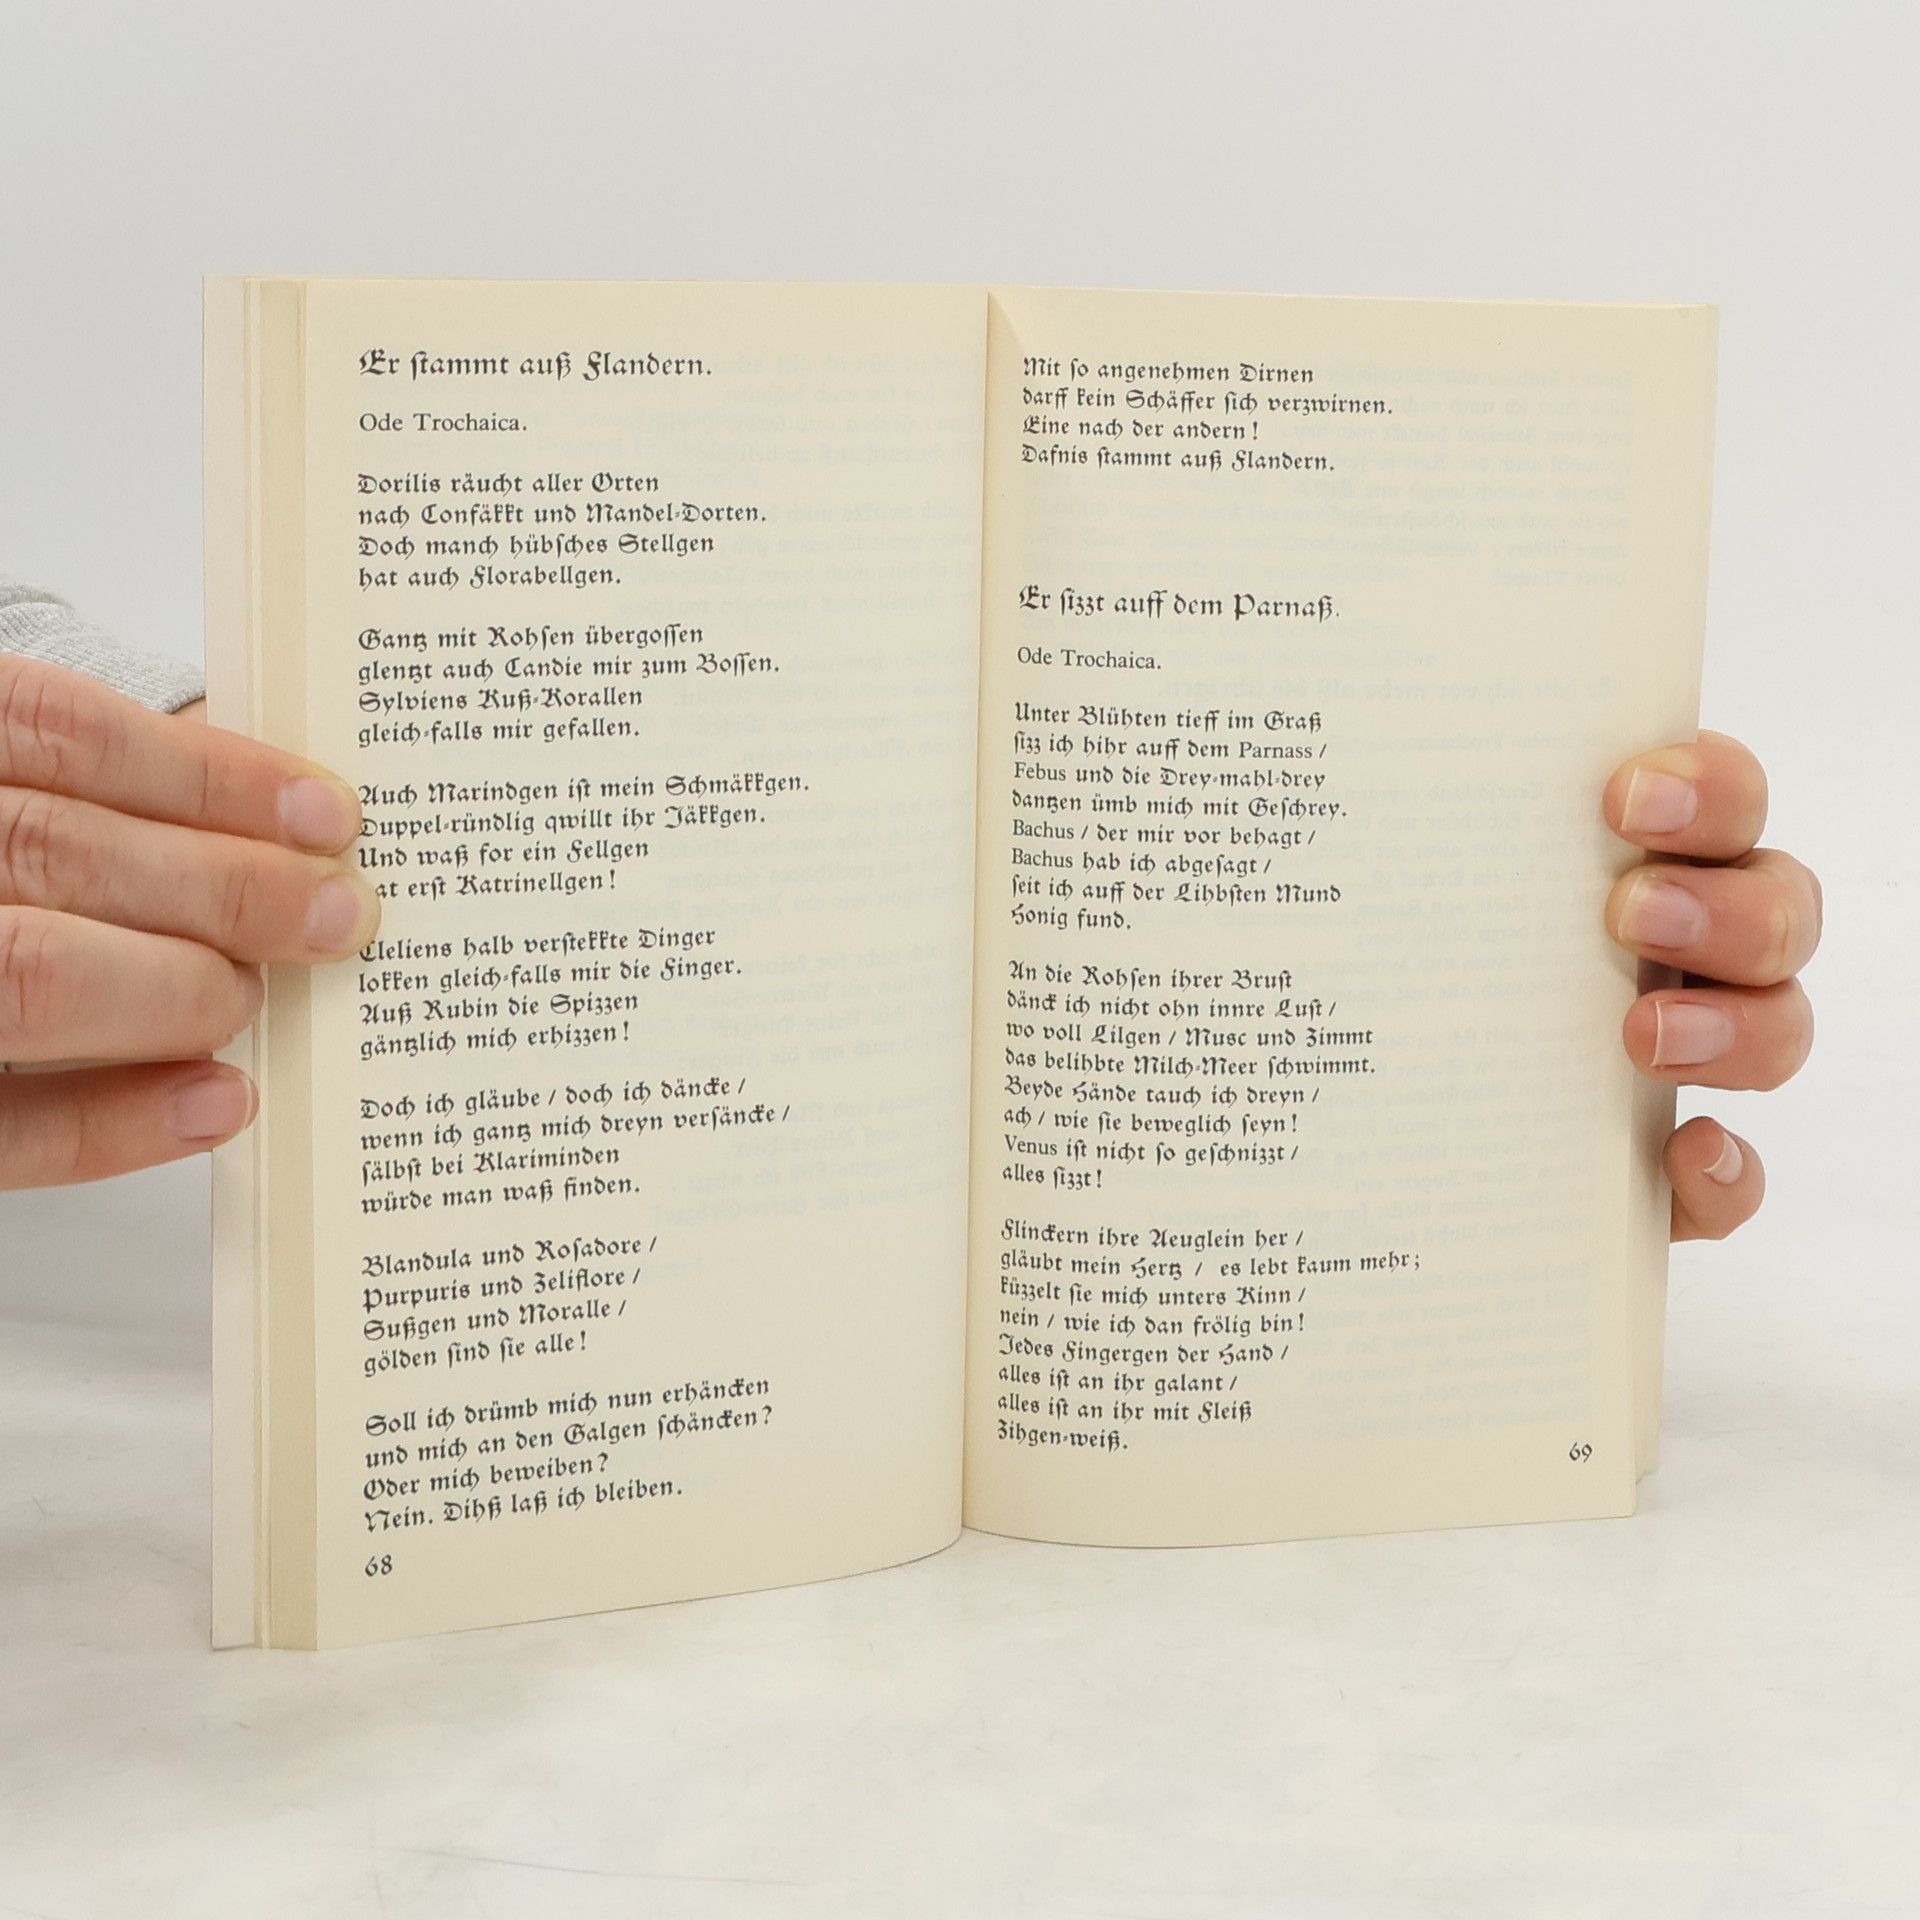 Er ſtammt auß Flandern.
Ode Trochaica.
Dorilis räucht aller Orten
nach Confäkkt und Mandel-Dorten.
Doch manch hübſches Stellgen
hat auch Florabellgen.
Gantz mit Rohſen übergoſſen
glentzt auch Candie mir zum Boſſen.
Sylviens Kuß-Korallen
gleich-falls mir gefallen.
Auch Marindgen iſt mein Schmäkkgen.
Duppel-ründlig qwillt ihr Jäkkgen.
Und waß for ein Fellgen
at erſt Katrinellgen!
Cleliens halb verſtekkte Dinger
lokken gleich-falls mir die Finger.
Auß Rubin die Spizzen
gäntzlich mich erhizzen!
Doch ich gläube / doch ich däncke /
wenn ich gantz mich dreyn verſäncke /
ſälbſt bei Klariminden
würde man waß finden.
Blandula und Roſadore /
Purpuris und Zeliflore /
Sußgen und Moralle /
gölden ſind ſie alle!
Soll ich drümb mich nun erhäncken
und mich an den Galgen ſchäncken?
Oder mich beweiben?
Nein. Dihß laß ich bleiben.
68
Mit ſo angenehmen Dirnen
darff kein Schäffer ſich verzwirnen.
Eine nach der andern!
Dafnis ſtammt auß Flandern.
Er ſizzt auff dem Parnaß.
Ode Trochaica.
Unter Blühten tieff im Graß
ſizz ich hihr auff dem Parnass /
Febus und die Drey-mahl-drey
dantzen ümb mich mit Geſchrey.
Bachus / der mir vor behagt /
Bachus hab ich abgeſagt /
ſeit ich auff der Lihbſten Mund
Honig fund.
An die Rohſen ihrer Bruſt
dänck ich nicht ohn innre Luſt /
wo voll Lilgen / Musc und Zimmt
das belihbte Milch-Meer ſchwimmt.
Beyde Hände tauch ich dreyn /
ach / wie ſie beweglich ſeyn!
Venus iſt nicht ſo geſchnizzt /
alles ſizzt!
Flinckern ihre Aeuglein her /
gläubt mein Hertz / es lebt kaum mehr;
küzzelt ſie mich unters Kinn /
nein / wie ich dan frölig bin!
Jedes Fingergen der Hand /
alles iſt an ihr galant /
alles iſt an ihr mit Fleiß
Zihgen-weiß.
69